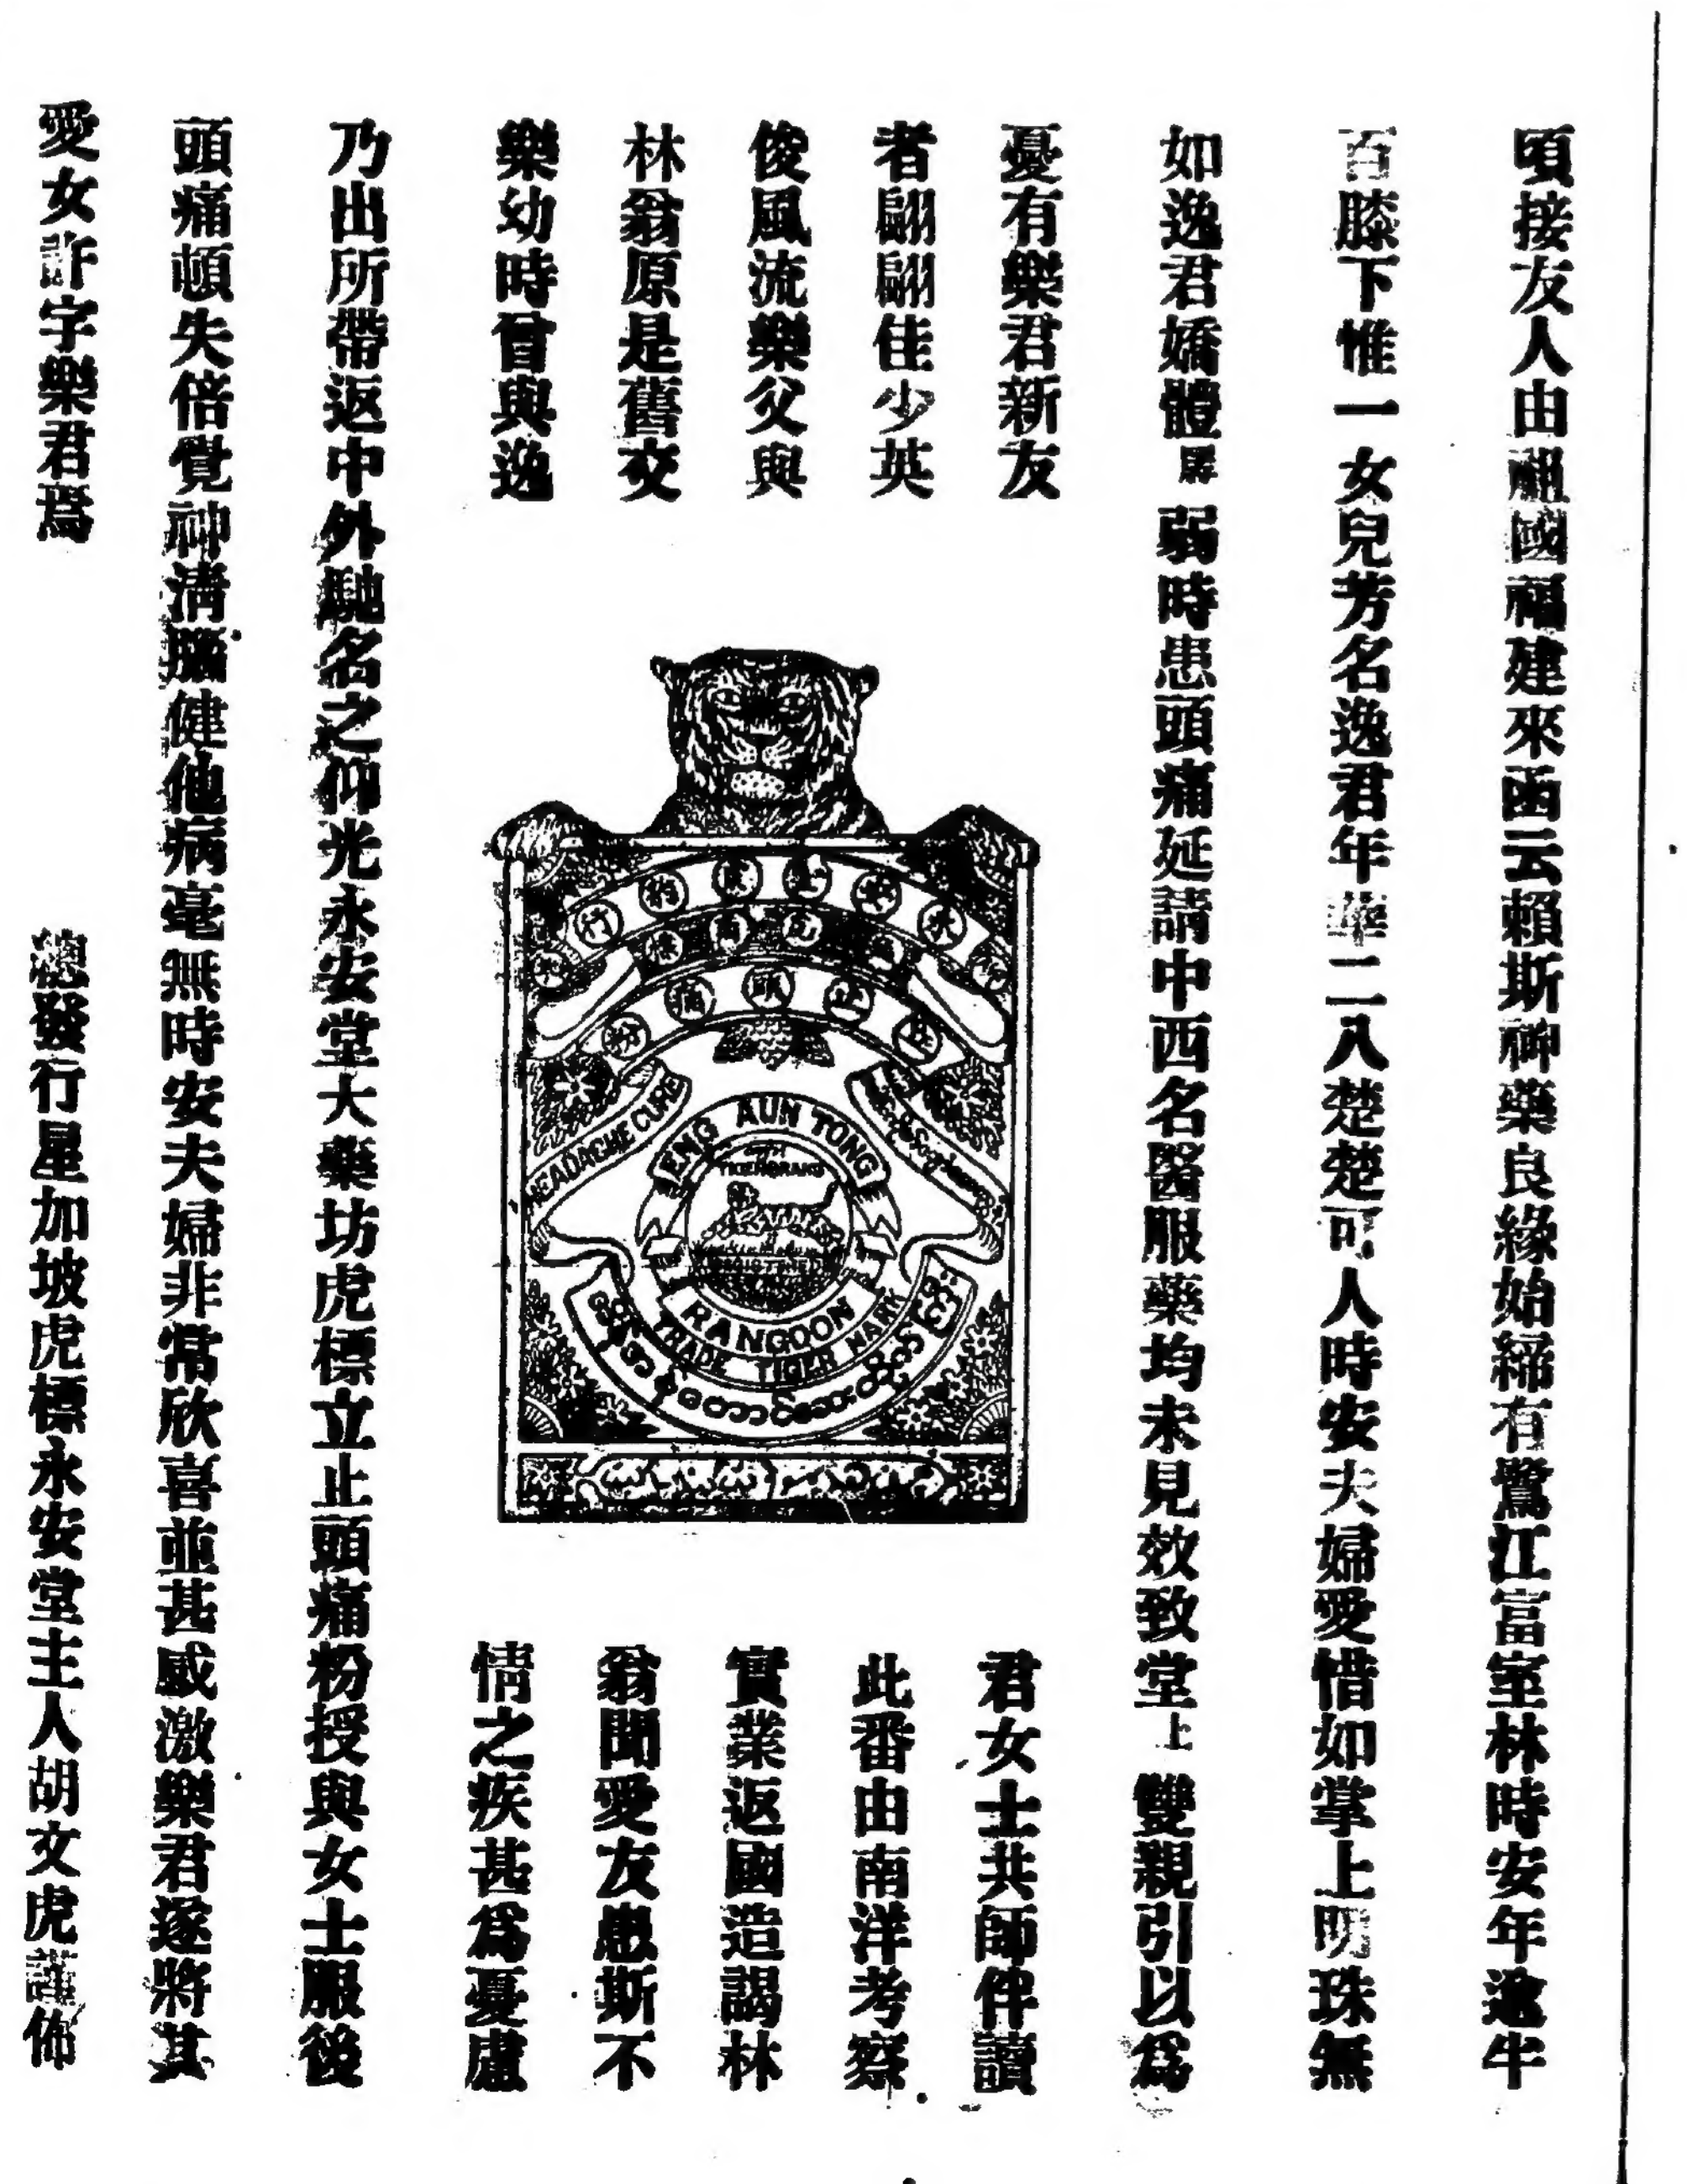 頃接友人由祖國福建來函云賴斯神藥良緣始締有鷺江富室林時安年逾半
百膝下惟一女兒芳名逸君年華二八楚楚可人時安夫婦愛惜如掌上明珠無
如逸君嬌體弱時患頭痛延請中西名醫服藥均未見效致堂上雙親引以爲
憂有樂君新友
者翩翩佳少英
俊風流樂父與
林翁原是舊交
樂幼時曾與逸
君女士共師俾讀
此番由南洋考察
實業返國造謁林
翁聞愛友患斯不
情之疾甚爲憂慮
乃出所帶返中外馳名之仰光永安堂大藥坊虎標立止頭痛粉授與女士服後
頭痛頓失倍覺神清腦健他病毫無時安夫婦非常欣喜並甚感激樂君遂將其
愛女許字樂君焉
總發行星加坡虎標永安堂主人胡文虎謹佈
止頭痛粉
HEADACHE CURE
ENG AUN TONG
TIGER BRAND
RANGOON
TRADE TIGER MARK